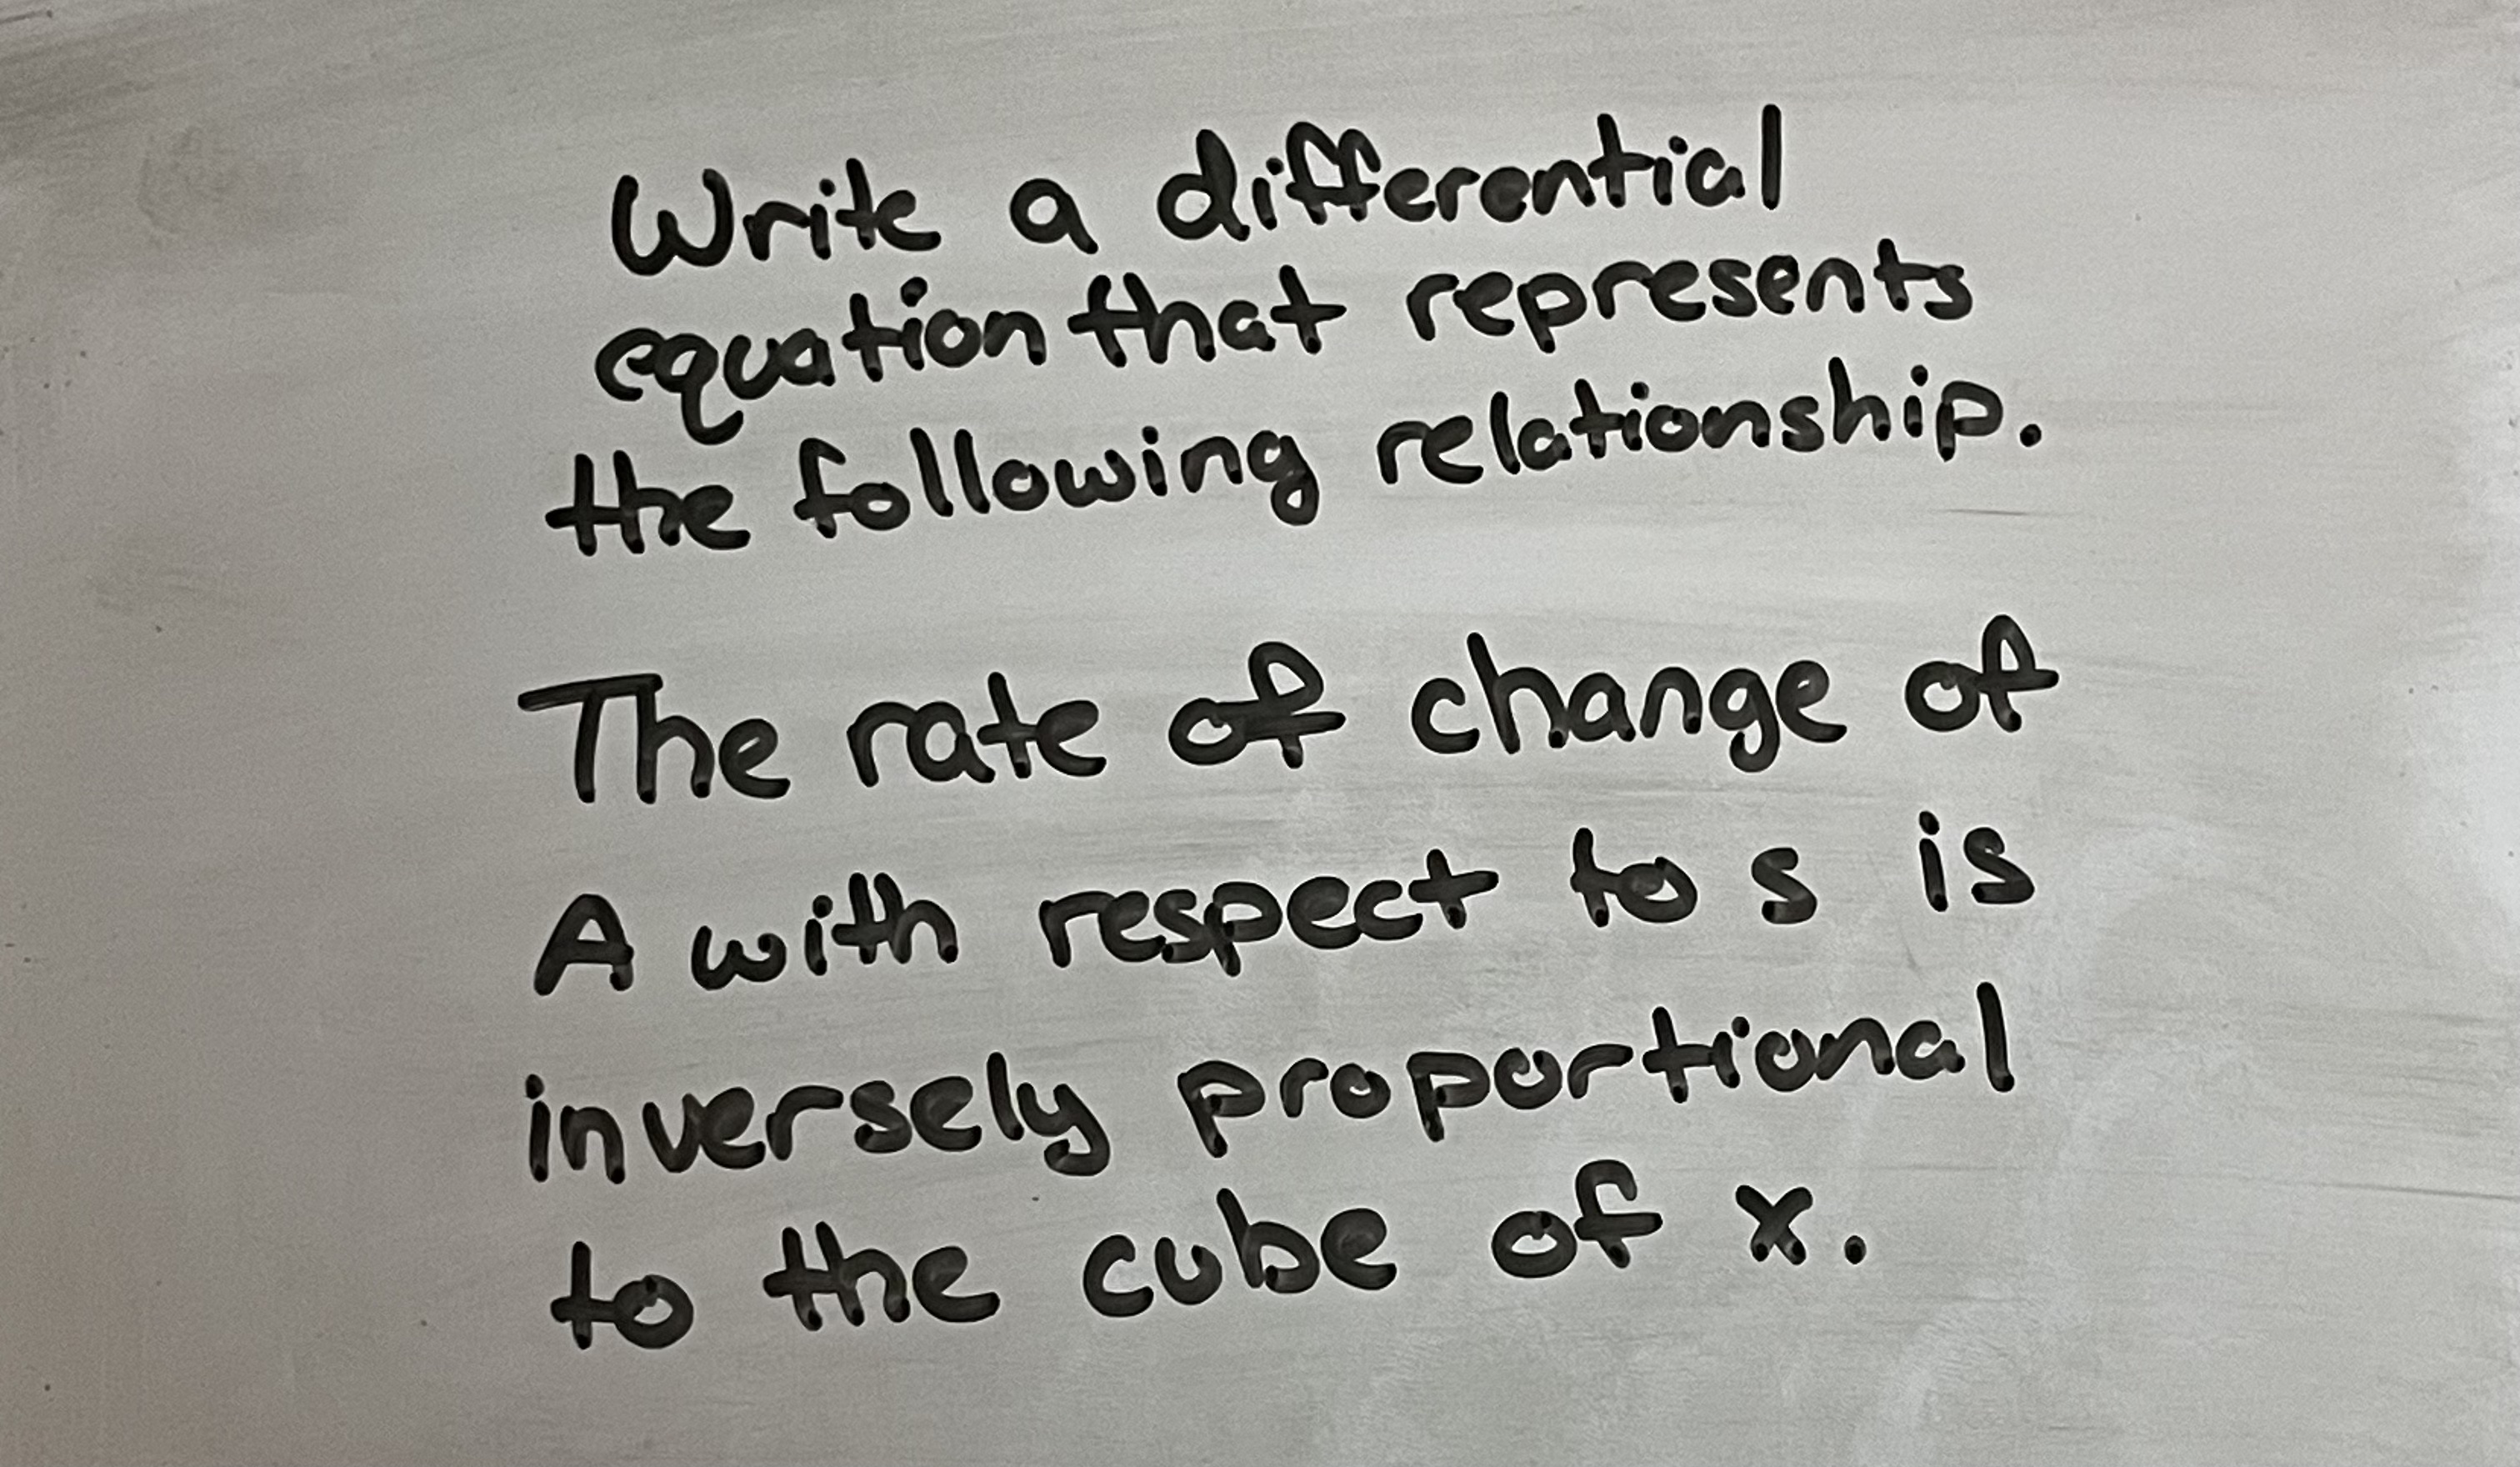 Write a differential
equation that represents
the following relationship.
The rate of change of
A with respect to s is
inversely proportional
to the cube of x.